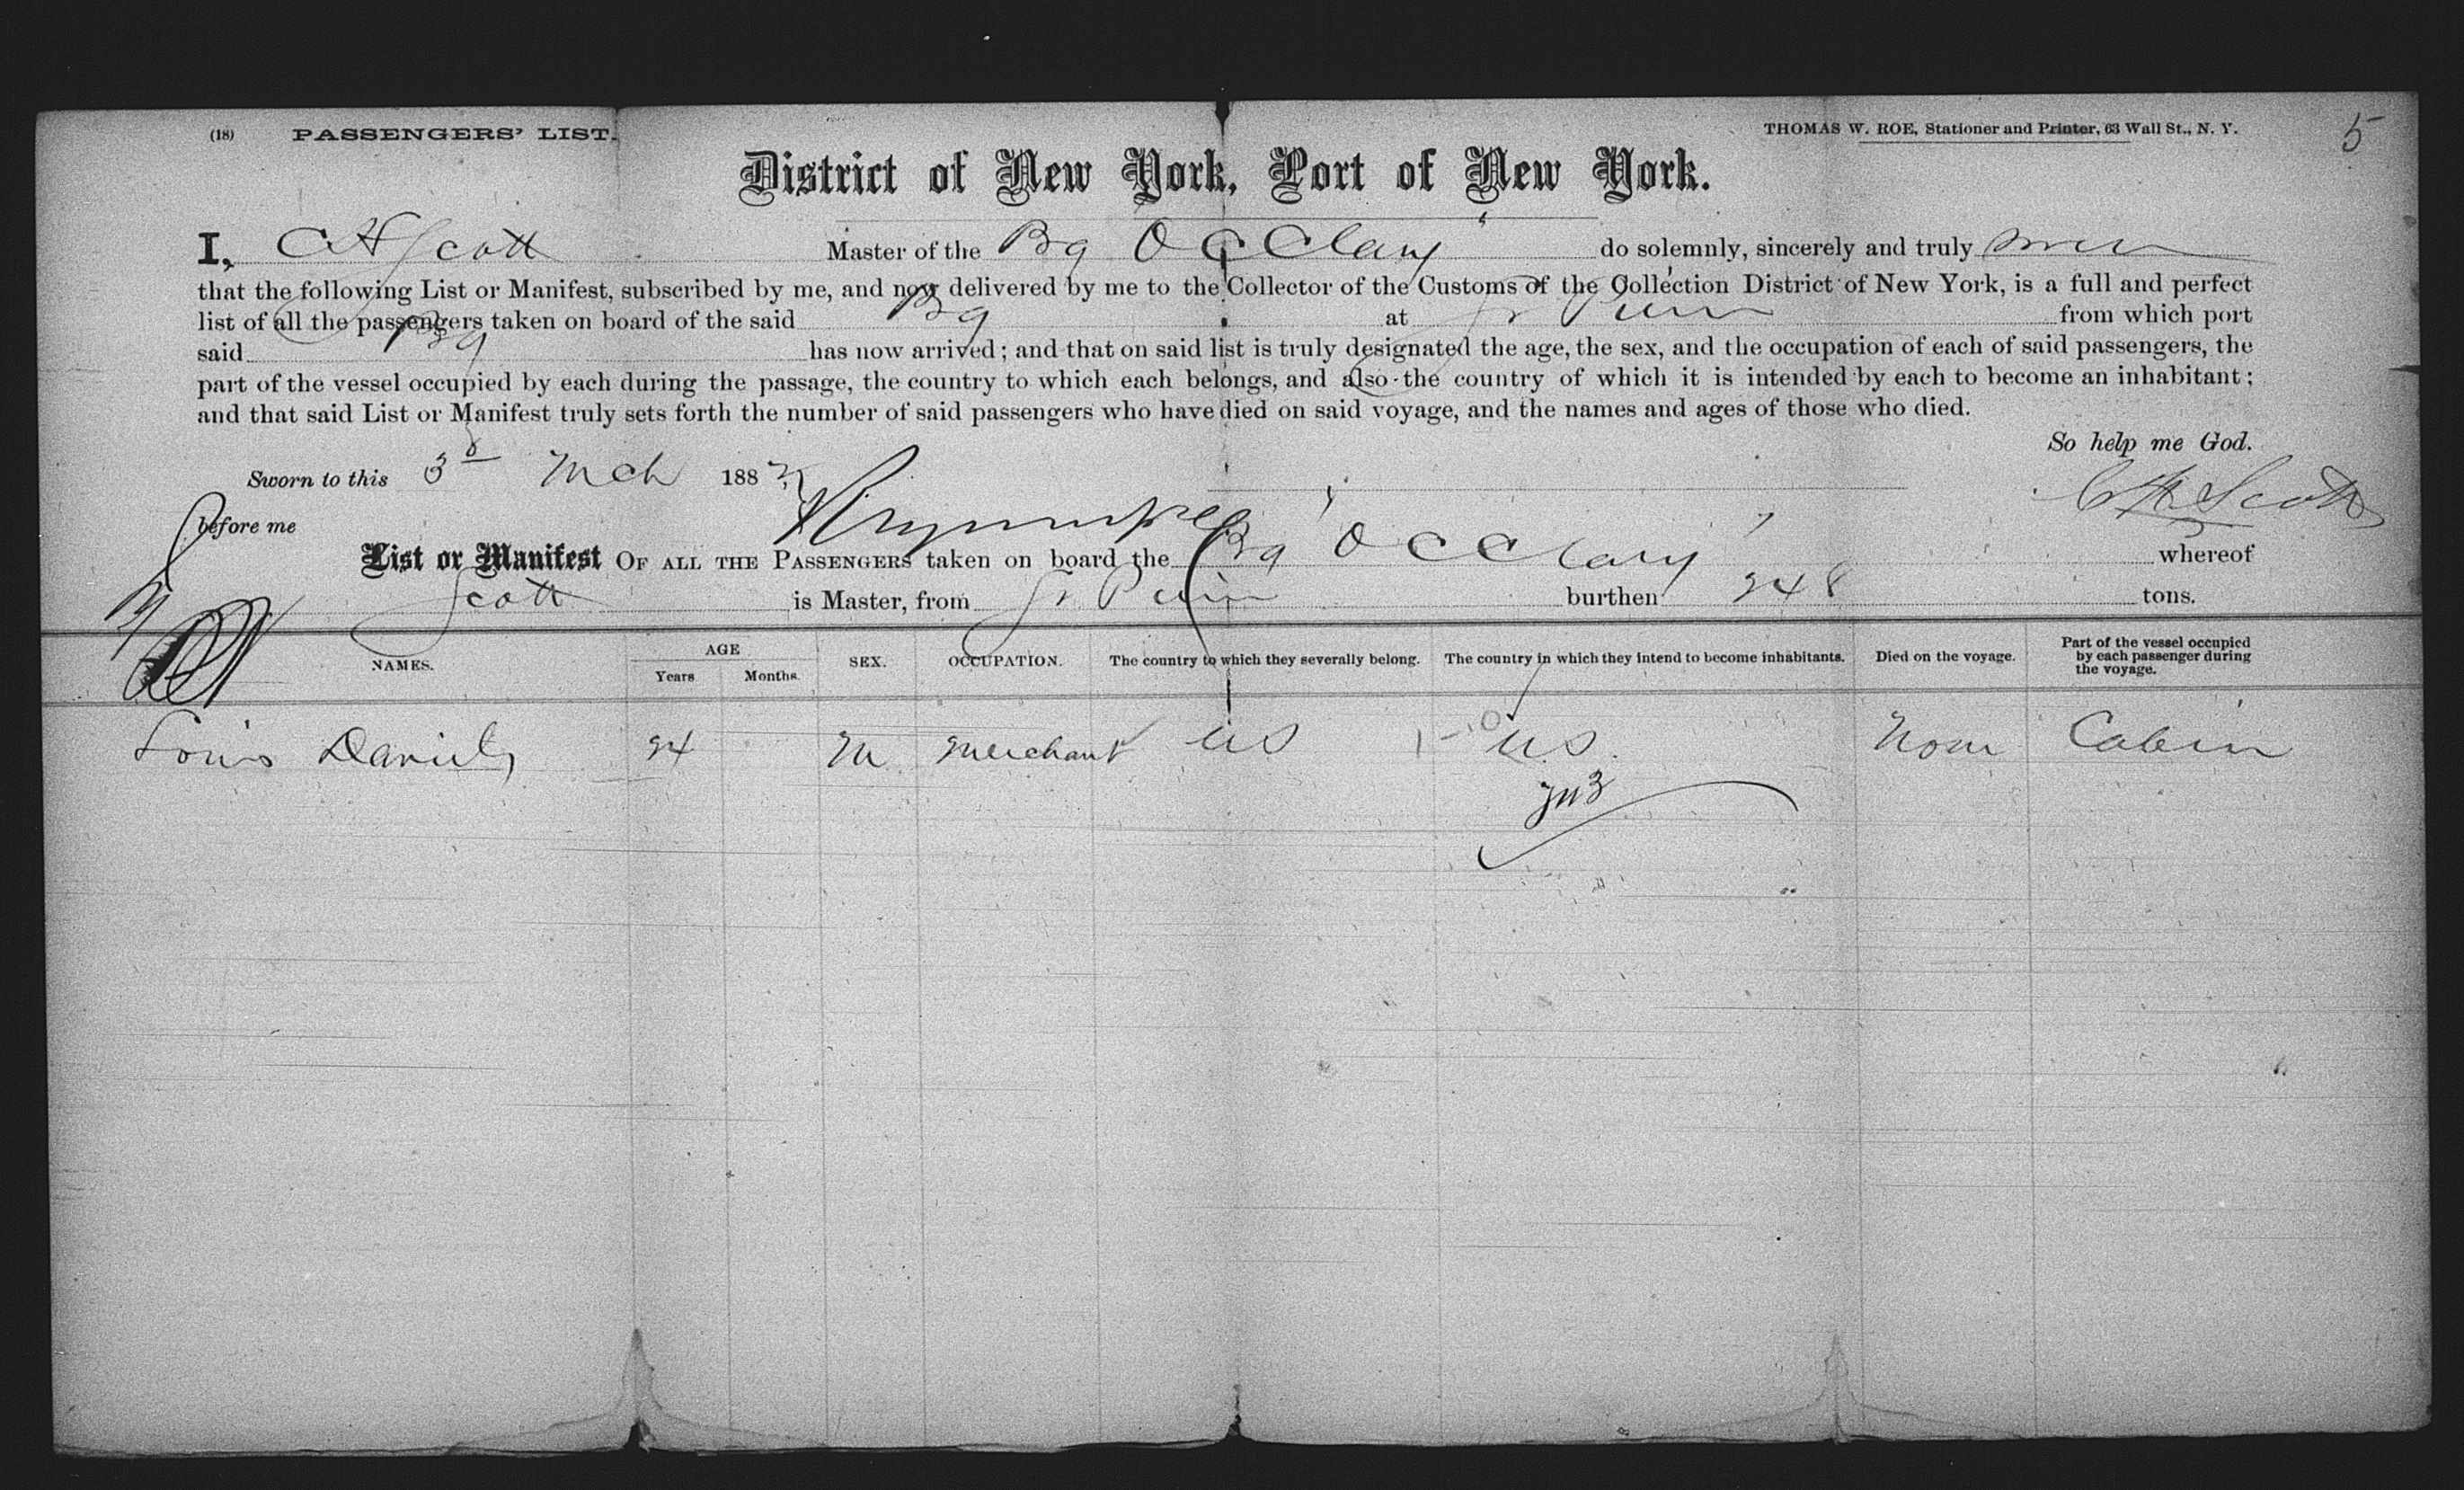 (18) PASSENGERS' LIST. THOMAS W. ROE, Stationer and Printer, 63 Wall St., N. Y. 5
District of New York, Port of New York.
I, C H Scott Master of the Bg O C Clary do solemnly, sincerely and truly
that the following List or Manifest, subscribed by me, and now delivered by me to the Collector of the Customs of the Collection District of New York, is a full and perfect
list of all the passengers taken on board of the said Bg at from which port
said Bg has now arrived; and that on said list is truly designated the age, the sex, and the occupation of each of said passengers, the
part of the vessel occupied by each during the passage, the country to which each belongs, and also the country of which it is intended by each to become an inhabitant;
and that said List or Manifest truly sets forth the number of said passengers who have died on said voyage, and the names and ages of those who died.
So help me God.
Sworn to this 3d Mch 188 C H Scott
before me
List or Manifest OF ALL THE PASSENGERS taken on board the Bg O C Clary whereof
Scott is Master, from burthen 248 tons.
NAMES. AGE Years Months. SEX. OCCUPATION. The country to which they severally belong. The country in which they intend to become inhabitants. Died on the voyage. Part of the vessel occupied by each passenger during the voyage.
Louis Daniels 24 M Merchant US U.S. None Cabin